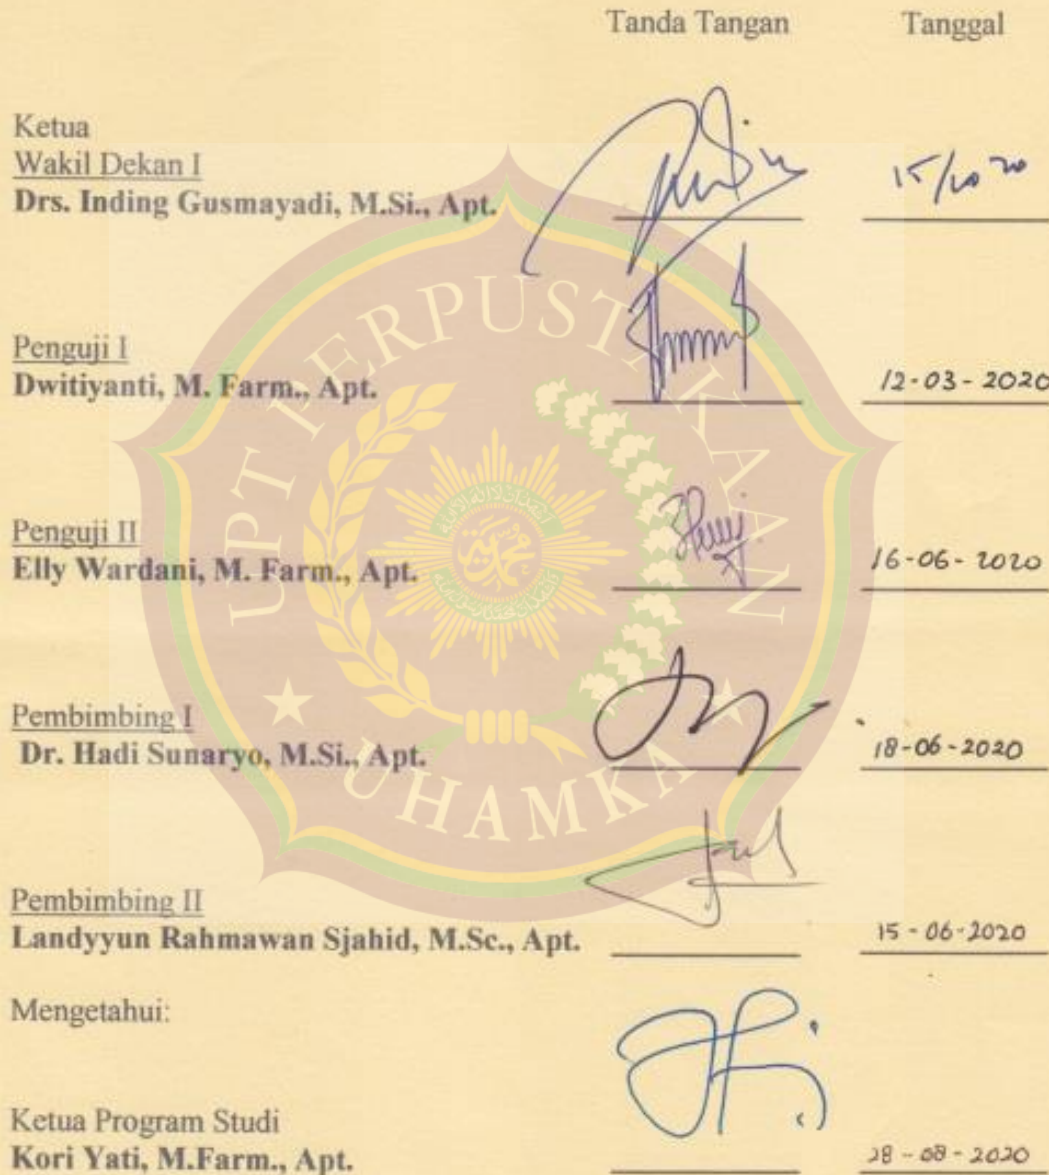 Tanda Tangan Tanggal
Ketua
Wakil Dekan I
Drs. Inding Gusmayadi, M.Si., Apt.
Penguji I
Dwitiyanti, M. Farm., Apt. 12-03-2020
Penguji II
Elly Wardani, M. Farm., Apt. 16-06-2020
Pembimbing I
Dr. Hadi Sunaryo, M.Si., Apt. 18-06-2020
Pembimbing II
Landyyun Rahmawan Sjahid, M.Sc., Apt. 15-06-2020
Mengetahui:
Ketua Program Studi
Kori Yati, M.Farm., Apt. 28-08-2020
UPT PERPUSTAKAAN
UHAMKA